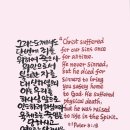 그리스도께서도
단번에 죄를
위하여 죽으사
의인으로서
불의한 자를
대신하셨으니
이는 우리를
하나님 앞으로
Christ suffered
for our sins once
for all time.
He never sinned,
but he died for
sinners to bring
you safely home
to God. He suffered
physical death,
but he was raised
to life in the Spirit.
1 Peter 3:18